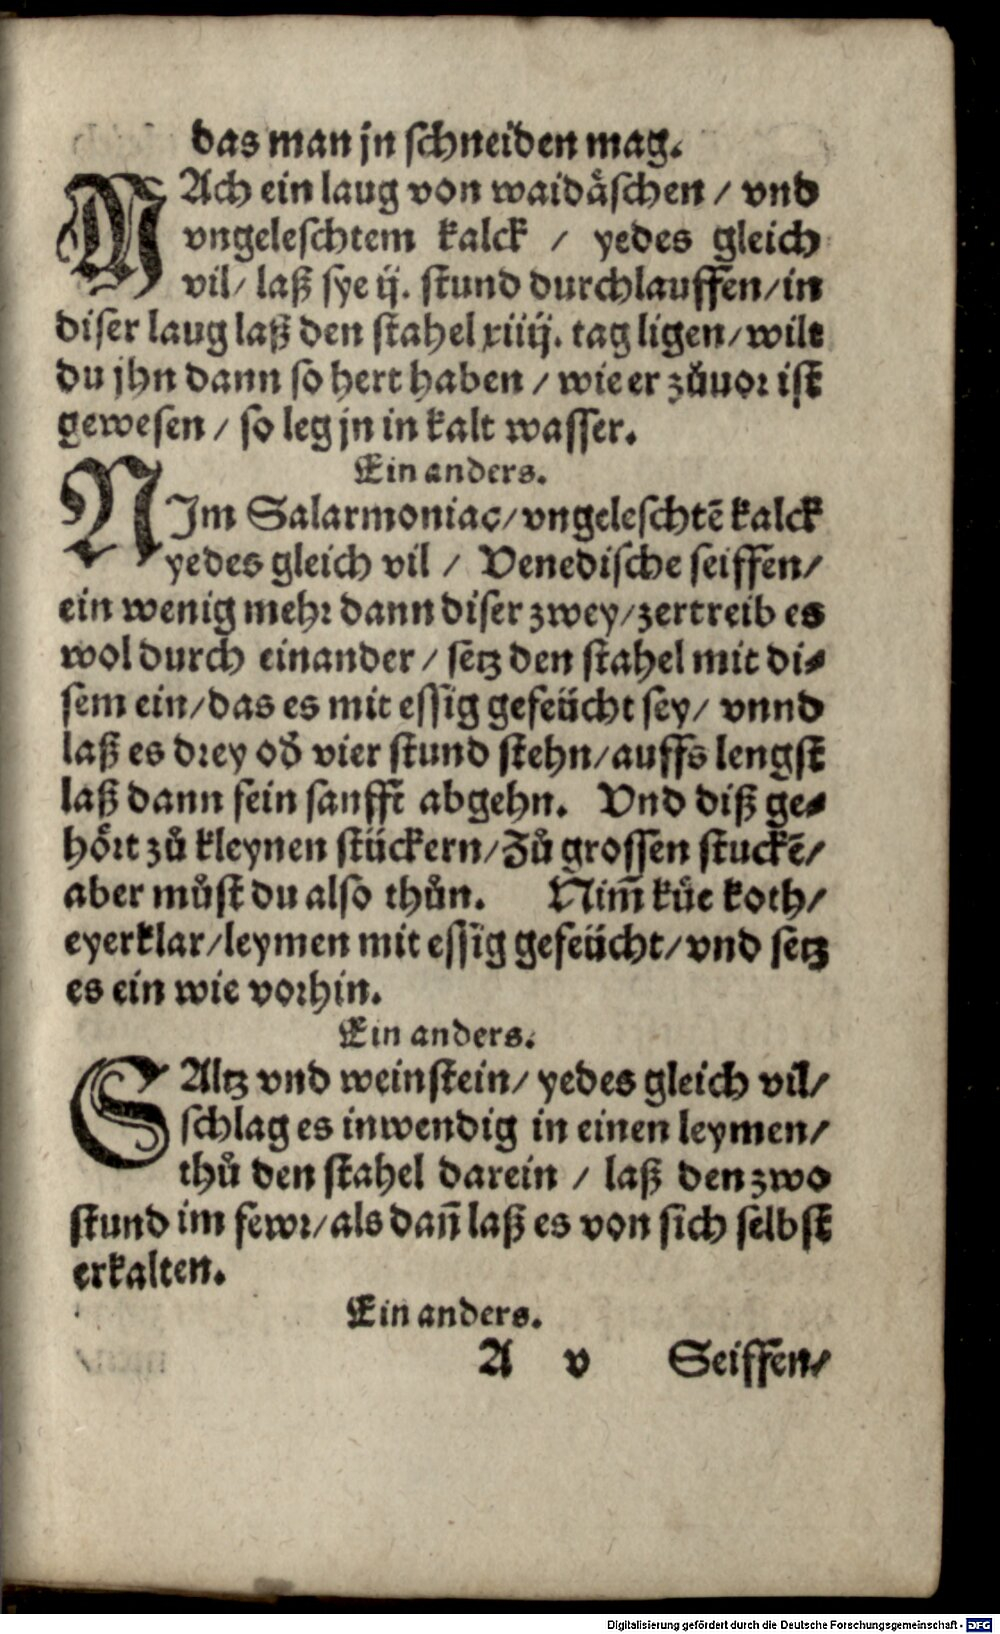 das man jn schneiden mag.
MAch ein laug von waidäschen / vnd
vngeleschtem kalck / yedes gleich
vil / laß sye ij. stund durchlauffen / in
diser laug laß den stahel xiiij. tag ligen / wilt
du jhn dann so hert haben / wie er zůuor ist
gewesen / so leg jn in kalt wasser.
Ein anders.
NIm Salarmoniac / vngeleschtē kalck
yedes gleich vil / Venedische seiffen /
ein wenig mehr dann diser zwey / zertreib es
wol durch einander / setz den stahel mit di⸗
sem ein / das es mit essig gefeücht sey / vnnd
laß es drey od̓ vier stund stehn / auffs lengst
laß dann sein sanfft abgehn. Vnd diß ge⸗
hört zů kleynen stückern / Zů grossen stuckē /
aber můst du also thůn. Nim̄ küe koth /
eyerklar / leymen mit essig gefeücht / vnd setz
es ein wie vorhin.
Ein anders.
SAltz vnd weinstein / yedes gleich vil /
schlag es inwendig in einen leymen /
thů den stahel darein / laß den zwo
stund im fewr / als dañ laß es von sich selbst
erkalten.
Ein anders.
A v Seiffen /
Digitalisierung gefördert durch die Deutsche Forschungsgemeinschaft - DFG